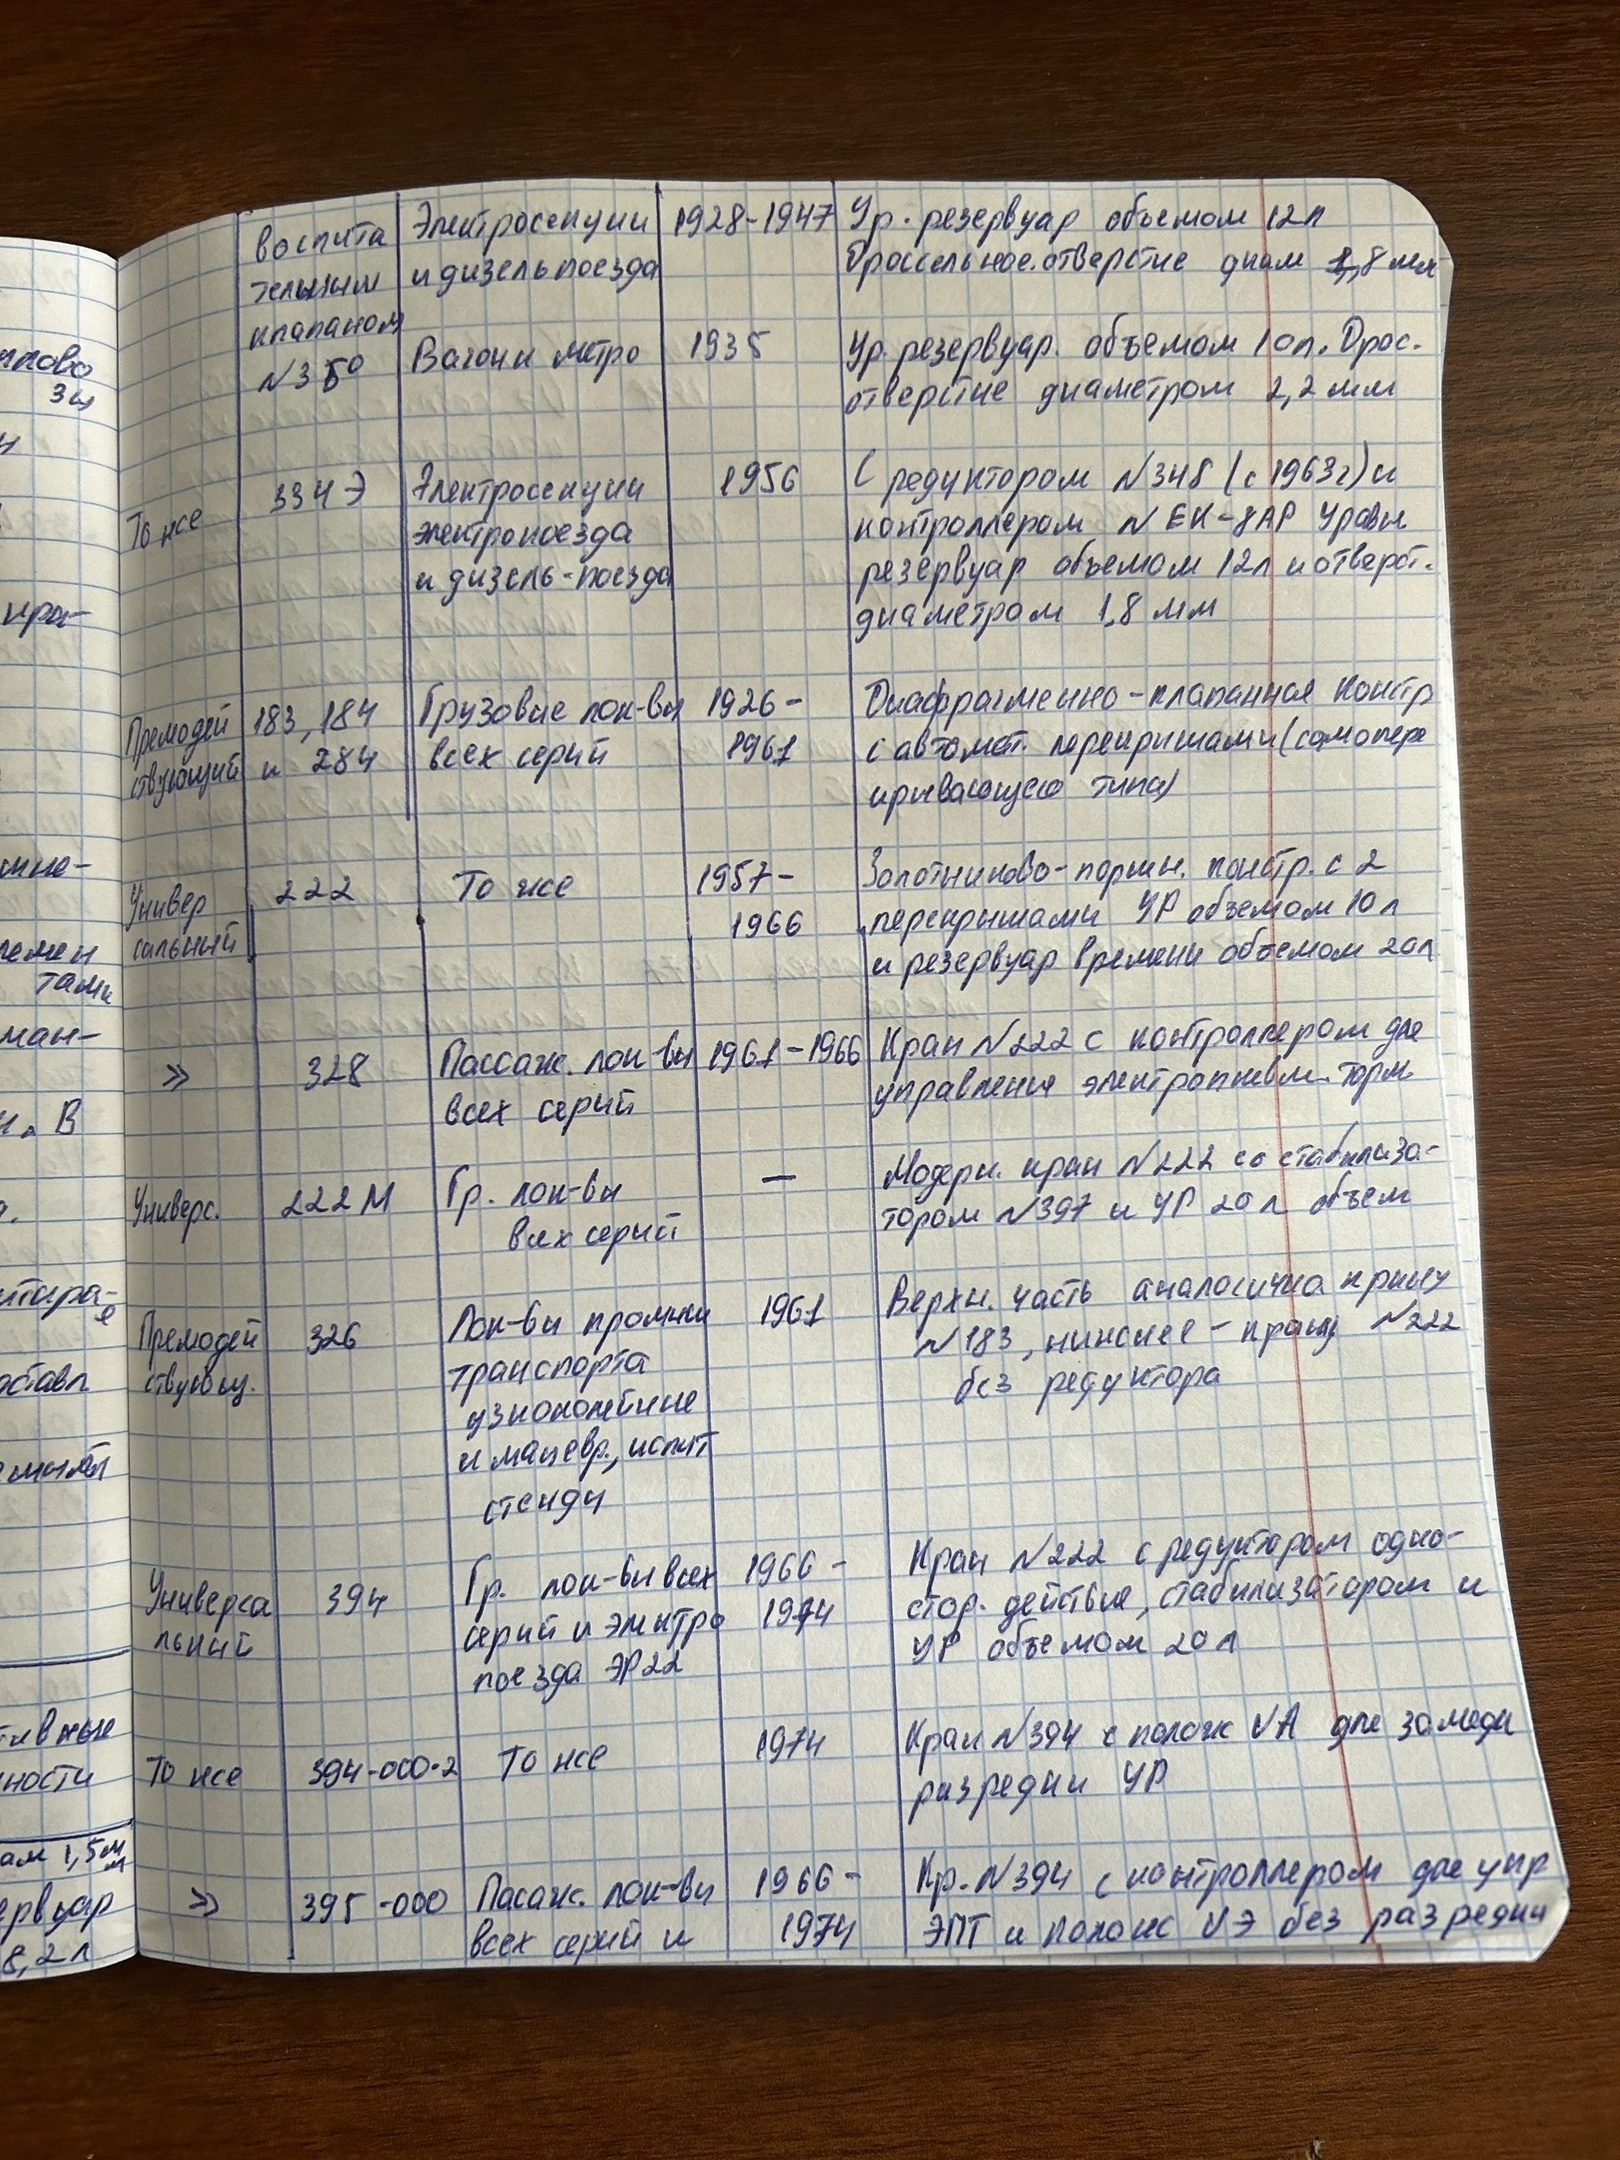 воспита
тельным
клапаном
№350
Электросекции
и дизель поезда
1928-1947
Ур. резервуар объемом 12л
Дроссельное.отверстие диам 1,8 мм
Вагоны метро
1935
Ур. резервуар. объемом 10л. Дрос.
отверстие диаметром 2,2 мм
То же
334Э
Электросекции
электропоезда
и дизель-поезда
1956
С редуктором №348 (с 1963г) и
контроллером № ЕК-8АР Уравн
резервуар объемом 12л и отверст.
диаметром 1,8 мм
Премодей
ствующий
183, 184
и 284
Грузовые лок-вы
всех серий
1926-
1961
Диафрагменно-клапанная констр
с автомат. перекришами (самопере
крывающего типа)
Универ
сальный
222
То же
1957-
1966
Золотниково-поршн. констр. с 2
перекрышами УР объемом 10л
и резервуар времени объемом 20л
»
328
Пассаж. лок-вы
всех серий
1961-1966
Кран №222 с контроллером для
управления электропневм. торм
Универс.
222М
Гр. лок-вы
всех серий
—
Модерн. кран №222 со стабилиза-
тором №397 и УР 20л объем
Премодей
ствующ.
326
Лок-вы промыш
транспорта
узкоколейные
и маневр., испыт
стенды
1961
Верхн. часть аналогична крану
№183, нижнее - крану №222
без редуктора
Универса
льный
394
Гр. лок-вы всех
серий и электро
поезда ЭР22
1966-
1974
Кран №222 с редуктором одно-
стор. действия, стабилизатором и
УР объемом 20л
То же
394-000-2
То же
1974
Кран №394 с полож VA для замедл
разрядки УР
»
395-000
Пасаж. лок-вы
всех серий и
1966-
1974
Кр. №394 с контроллером для упр
ЭПТ и полож VЭ без разрядки